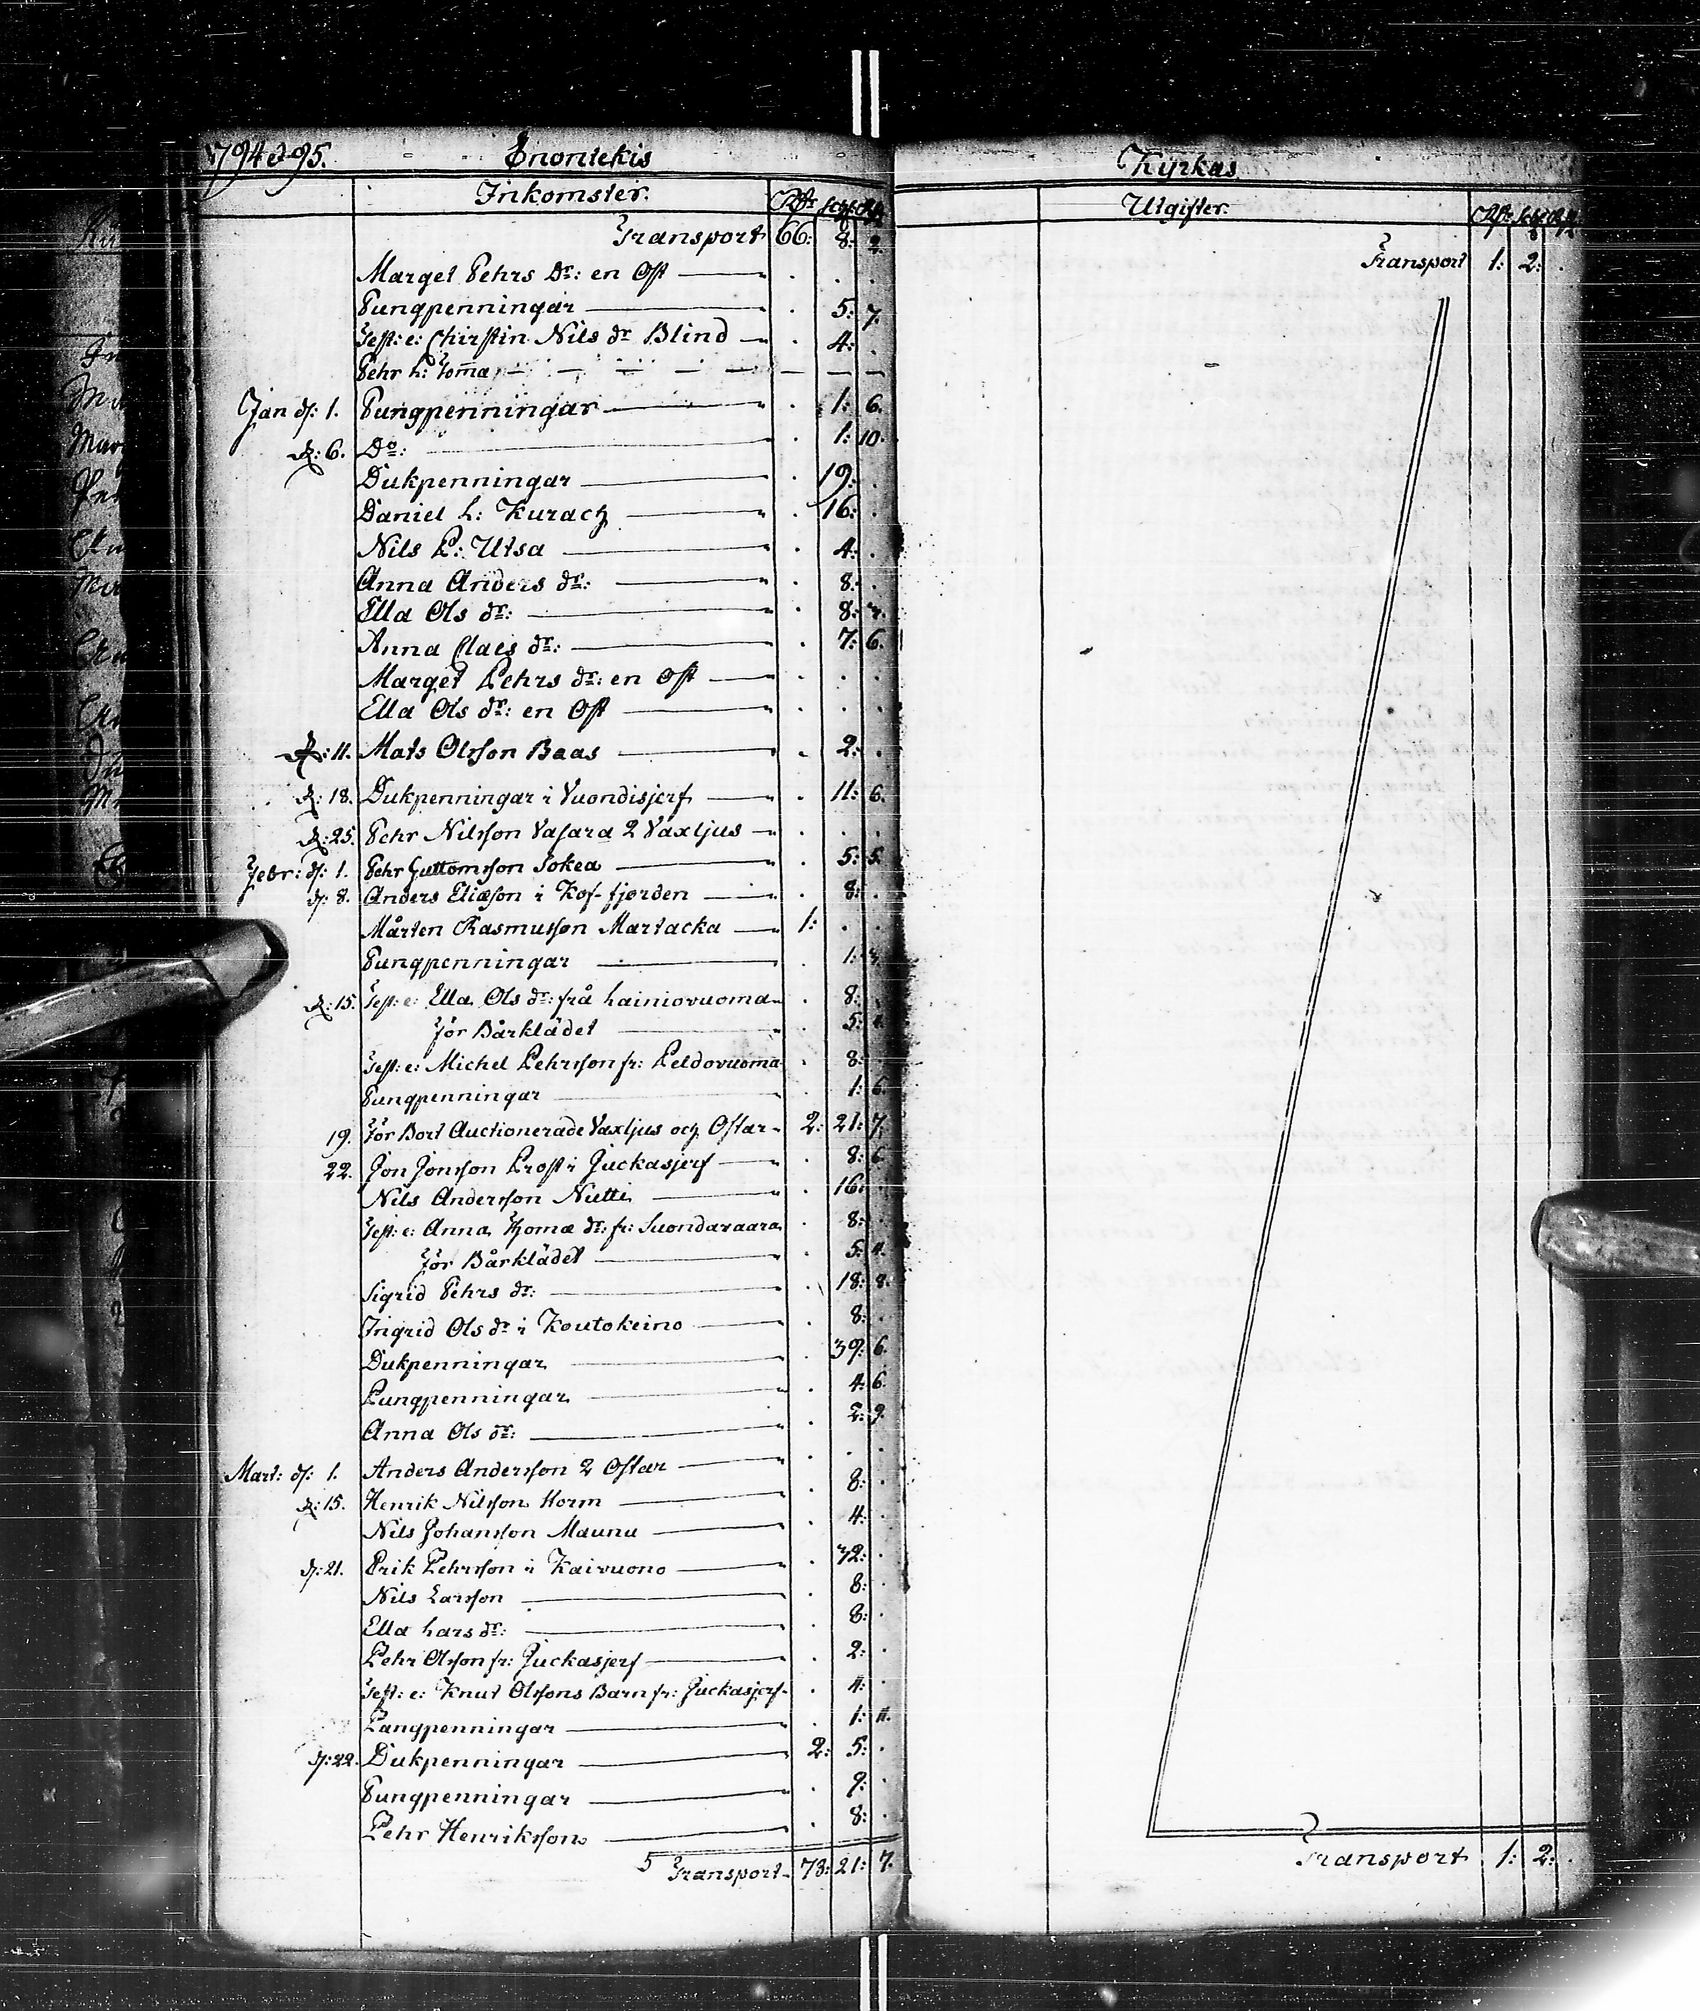 1794 & 95. Enontekis
Inkomster. Rdr sch rst
Transport 66: 8: 2.
Marget Pehrs dr: en Ost . . .
Pungpenningar . 5: 7.
Test: e: Chirstin Nils dr Blind . 4: .
Pehr L: Tomma — — —
Jan d: 1. Pungpenningar . 1: 6.
d: 6. Do: . 1: 10.
Dukpenningar . 19: .
Daniel L: Kurach . 16: .
Nils P: Utsa . 4: .
Anna Anders dr: . 8: .
Ella Ols dr: . 8:
Anna Claes dr: . 7: 6.
Marget Pehrs dr: en Ost . . .
Ella Ols dr: en Ost . . .
d: 11. Mats Olsson Baas . 2: .
d: 18. Dukpenningar i Vuondisjerf . 11: 6.
d: 25. Pehr Nilsson Vasara 2 Vaxljus . . .
Febr: d: 1. Pehr Guttomsson Sokea . 5: 5.
d: 8. Anders Eliæson i Kof-fjorden . 8: .
Mårten Rasmusson Martacka 1: . .
Pungpenningar . 1:
d: 15. Test: e: Ella Ols dr: frå Lainiovuoma . 8: .
för Bårklädet . 5: 4.
Test: e: Michel Pehrsson fr: Peldovuoma . 8: .
Pungpenningar . 1: 6.
19. för Bort Auctionerade Vaxljus och Ostar 2: 21: 7.
22. Jon Jonsson Prost i Juckasjerf . 8: 6.
Nils Andersson Nutti . 16: .
Test: e: Anna Thomæ dr: fr: Suondavaara . 8: .
för Bårklädet . 5: 4.
Sigrid Pehrs dr: . 18: 8.
Ingrid Ols dr i Koutokeino . 8: .
Dukpenningar . 39: 6.
Pungpenningar . 4: 6.
Anna Ols dr: . 2: 9.
Mart: d: 1. Anders Andersson 2 Ostar . . .
d: 15. Henrik Nilsson Horm . 8: .
Nils Johansson Maunu . 4: .
d: 21. Erik Pehrsson i Kaivuono . 32: .
Nils Larsson . 8: .
Ella Lars dr: . 8: .
Pehr Olsson fr: Juckasjerf . 2: .
Test: e: Knut Olssons Barn fr: Juckasjerf . 4: .
Pungpenningar . 1: 11.
d: 22. Dukpenningar 2: 5: .
Pungpenningar . 9: .
Pehr Henriksson . 8: .
5 Transport 78: 21: 7.
Kyrkas
Utgifter. Rdr sch rst
Transport 1: 2: .
Transport 1: 2: .